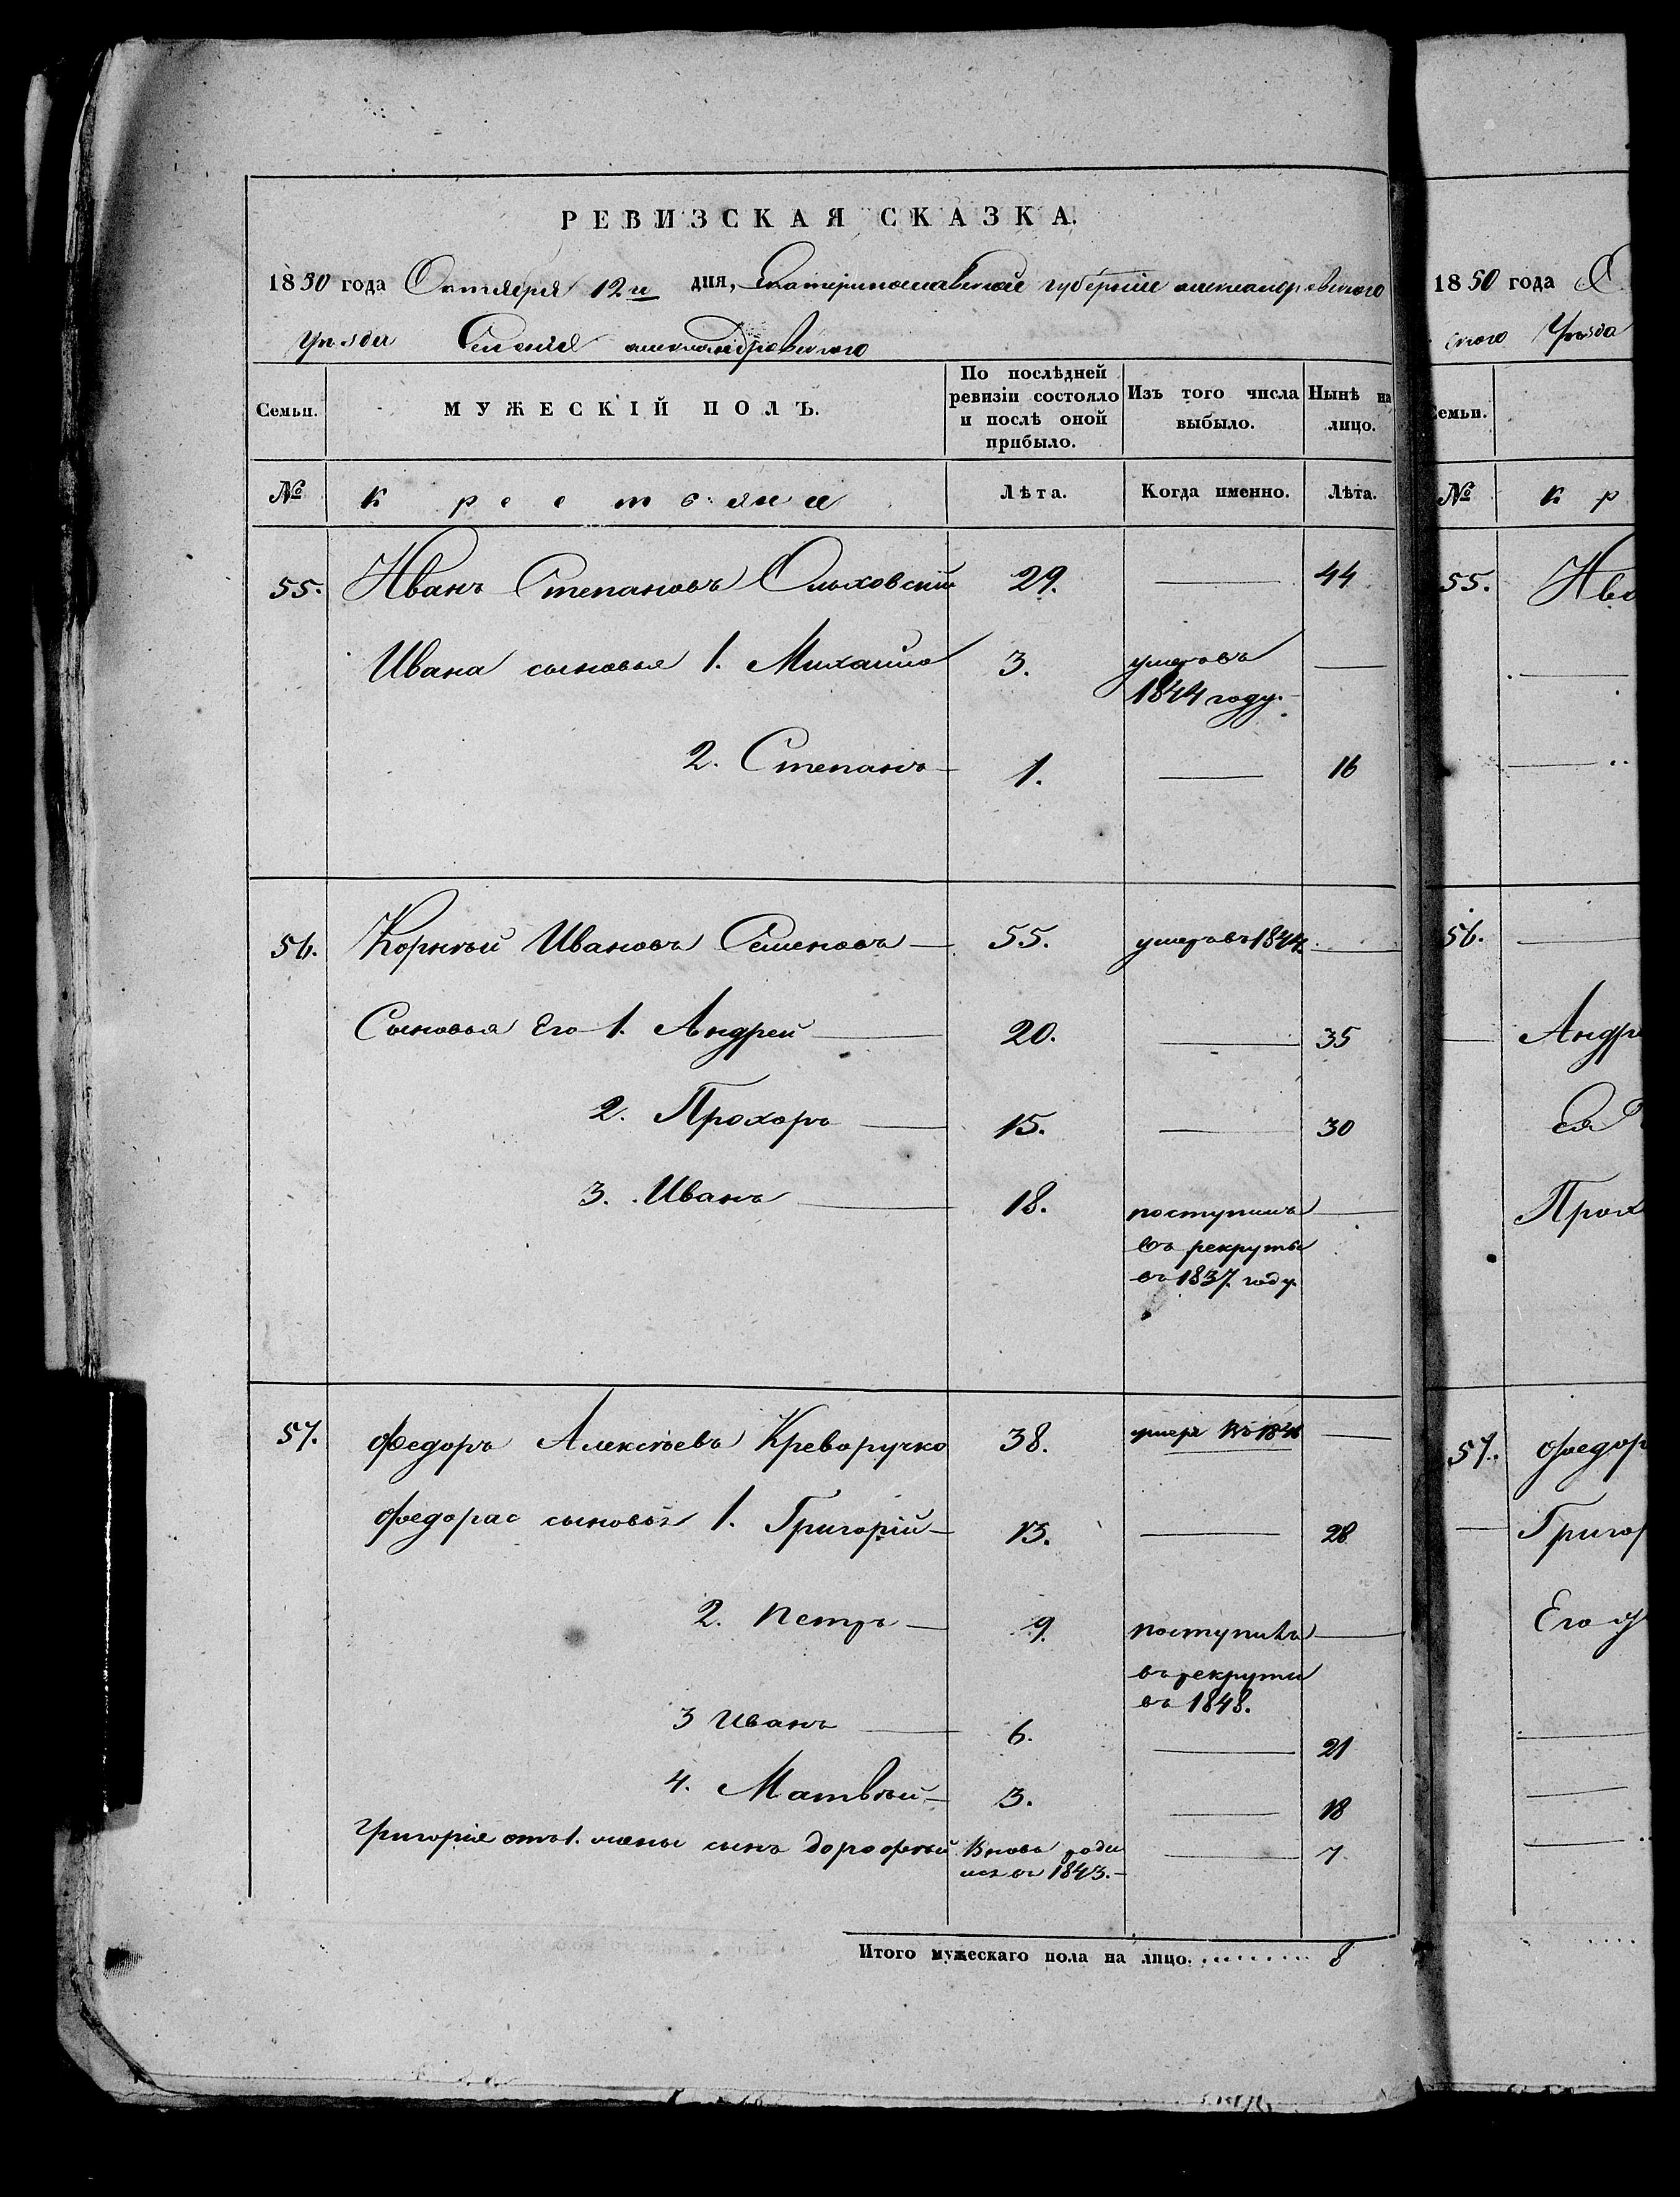 РЕВИЗСКАЯ СКАЗКА.
1850 года Октября 12го дня, Екатеринославской губерніи александровского
Уѣзда Селенія александровского
Семьи. МУЖЕСКІЙ ПОЛЪ. По послѣдней ревизіи состояло и послѣ оной прибыло. Изъ того числа выбыло. Нынѣ на лицо.
№ крестьяне Лѣта. Когда именно. Лѣта.
55. Иванъ Степановъ Ольховскій 29. — 44
Ивана сыновья 1. Михайло 3. умеръ въ —
1844 году.
2. Степанъ — 1. — 16
56. Корнѣй Ивановъ Семеновъ — 55. умеръ въ 1844. —
Сыновья Его 1. Андрей — 20. — 35
2. Прохоръ — 15. — 30
3. Иванъ — 18. поступилъ —
въ рекруты
въ 1837. году.
57. Федоръ Алексѣевъ Креворучко 38. умеръ Въ —
Федорас сыновья 1. Григорій — 13. — 28
2. Петръ — 9. поступилъ —
въ рекруты
въ 1848.
3 Иванъ — 6. — 21
4. Матвѣй — 3. — 18
Григорія отъ 1. жены сынъ Дорофѣй Вновь роди — 7
лся въ 1843. —
Итого мужескаго пола на лицо. . . . . . . . . 8
1850 года
ского Уѣзда
Семьи.
№ к р
55. Ива
56. —
— Андре
Ея
Прох
57. Федор
— Григор
Его